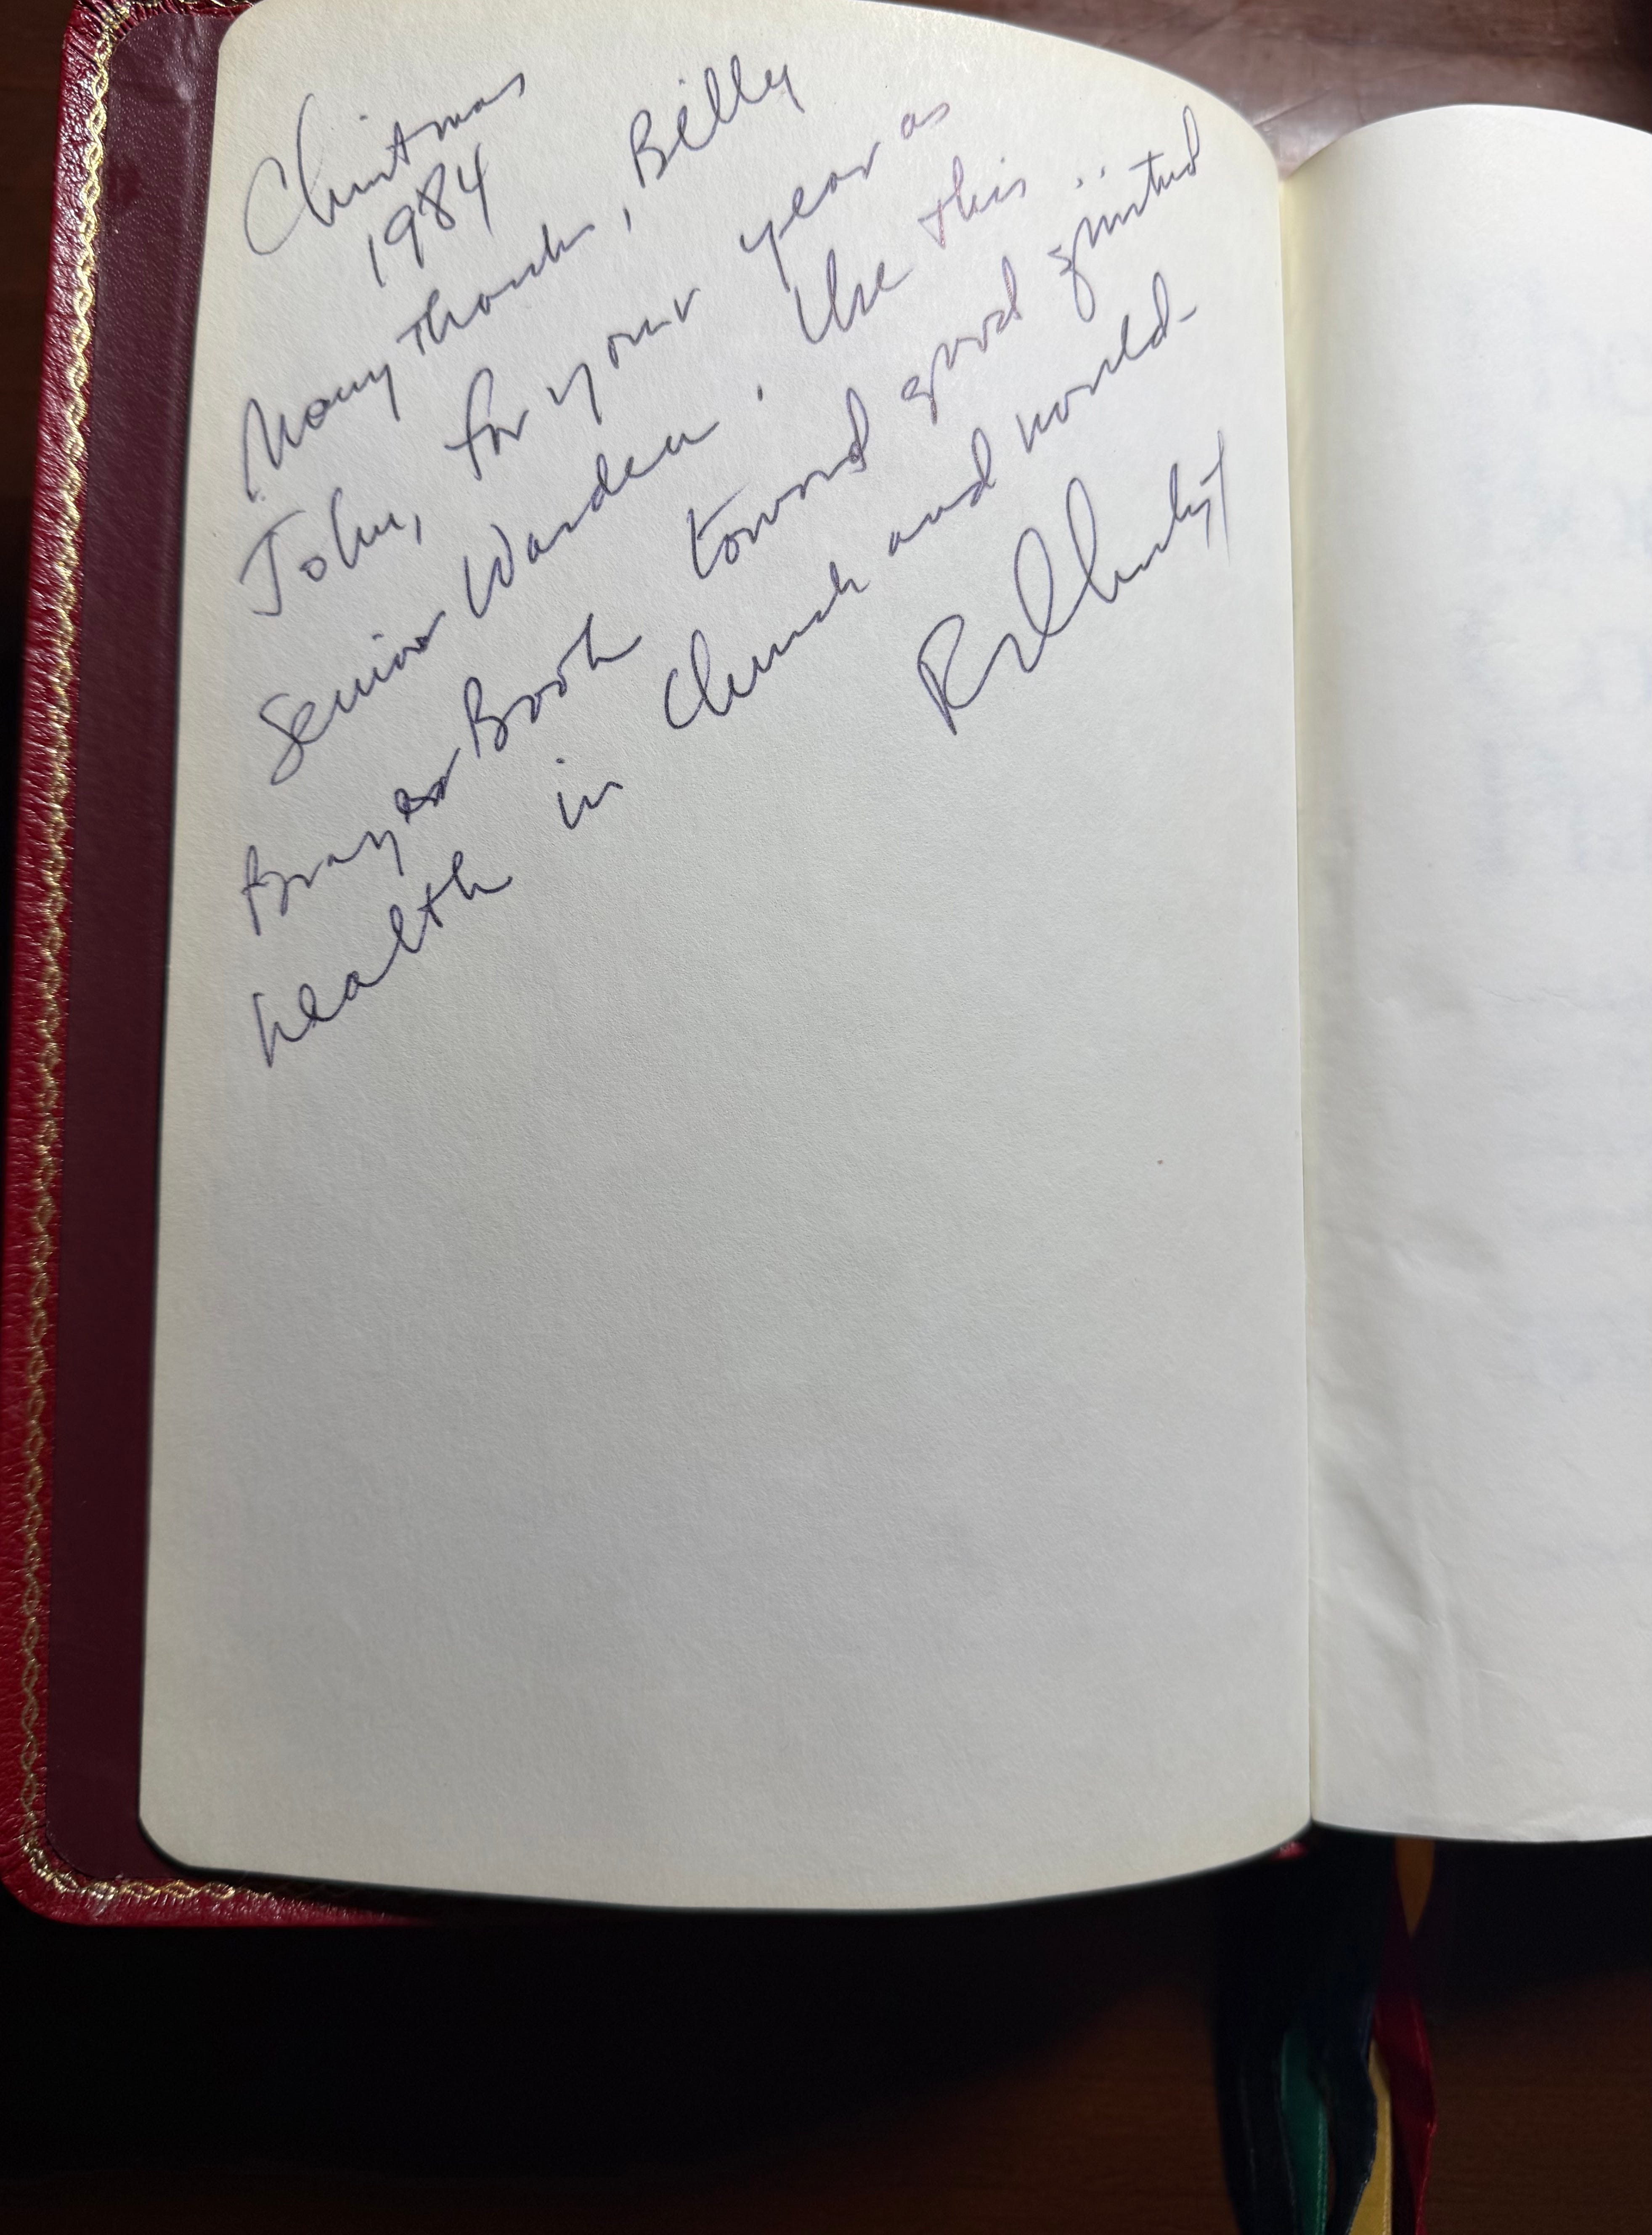 Christmas
1984
Many thanks, Billy
John, for your year as
Senior Warden. Use this
Prayer Book toward good spirited
health in Church and world-